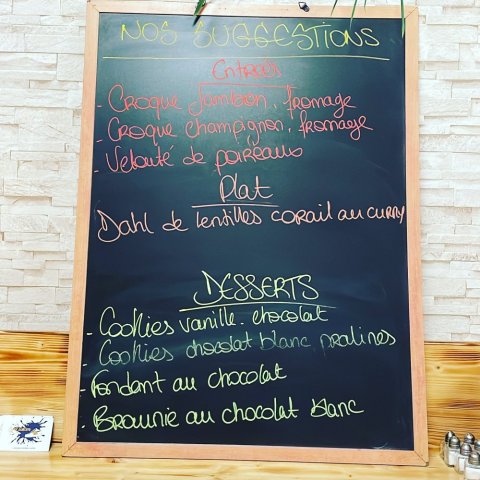 NOS SUGGESTIONS
Entrées
- Croque Jambon, fromage
- Croque champignon, fromage
- Velouté de poireaux
Plat
Dahl de lentilles corail au curry
DESSERTS
- Cookies vanille - chocolat
- Cookies chocolat blanc pralines
- Fondant au chocolat
- Brownie au chocolat blanc